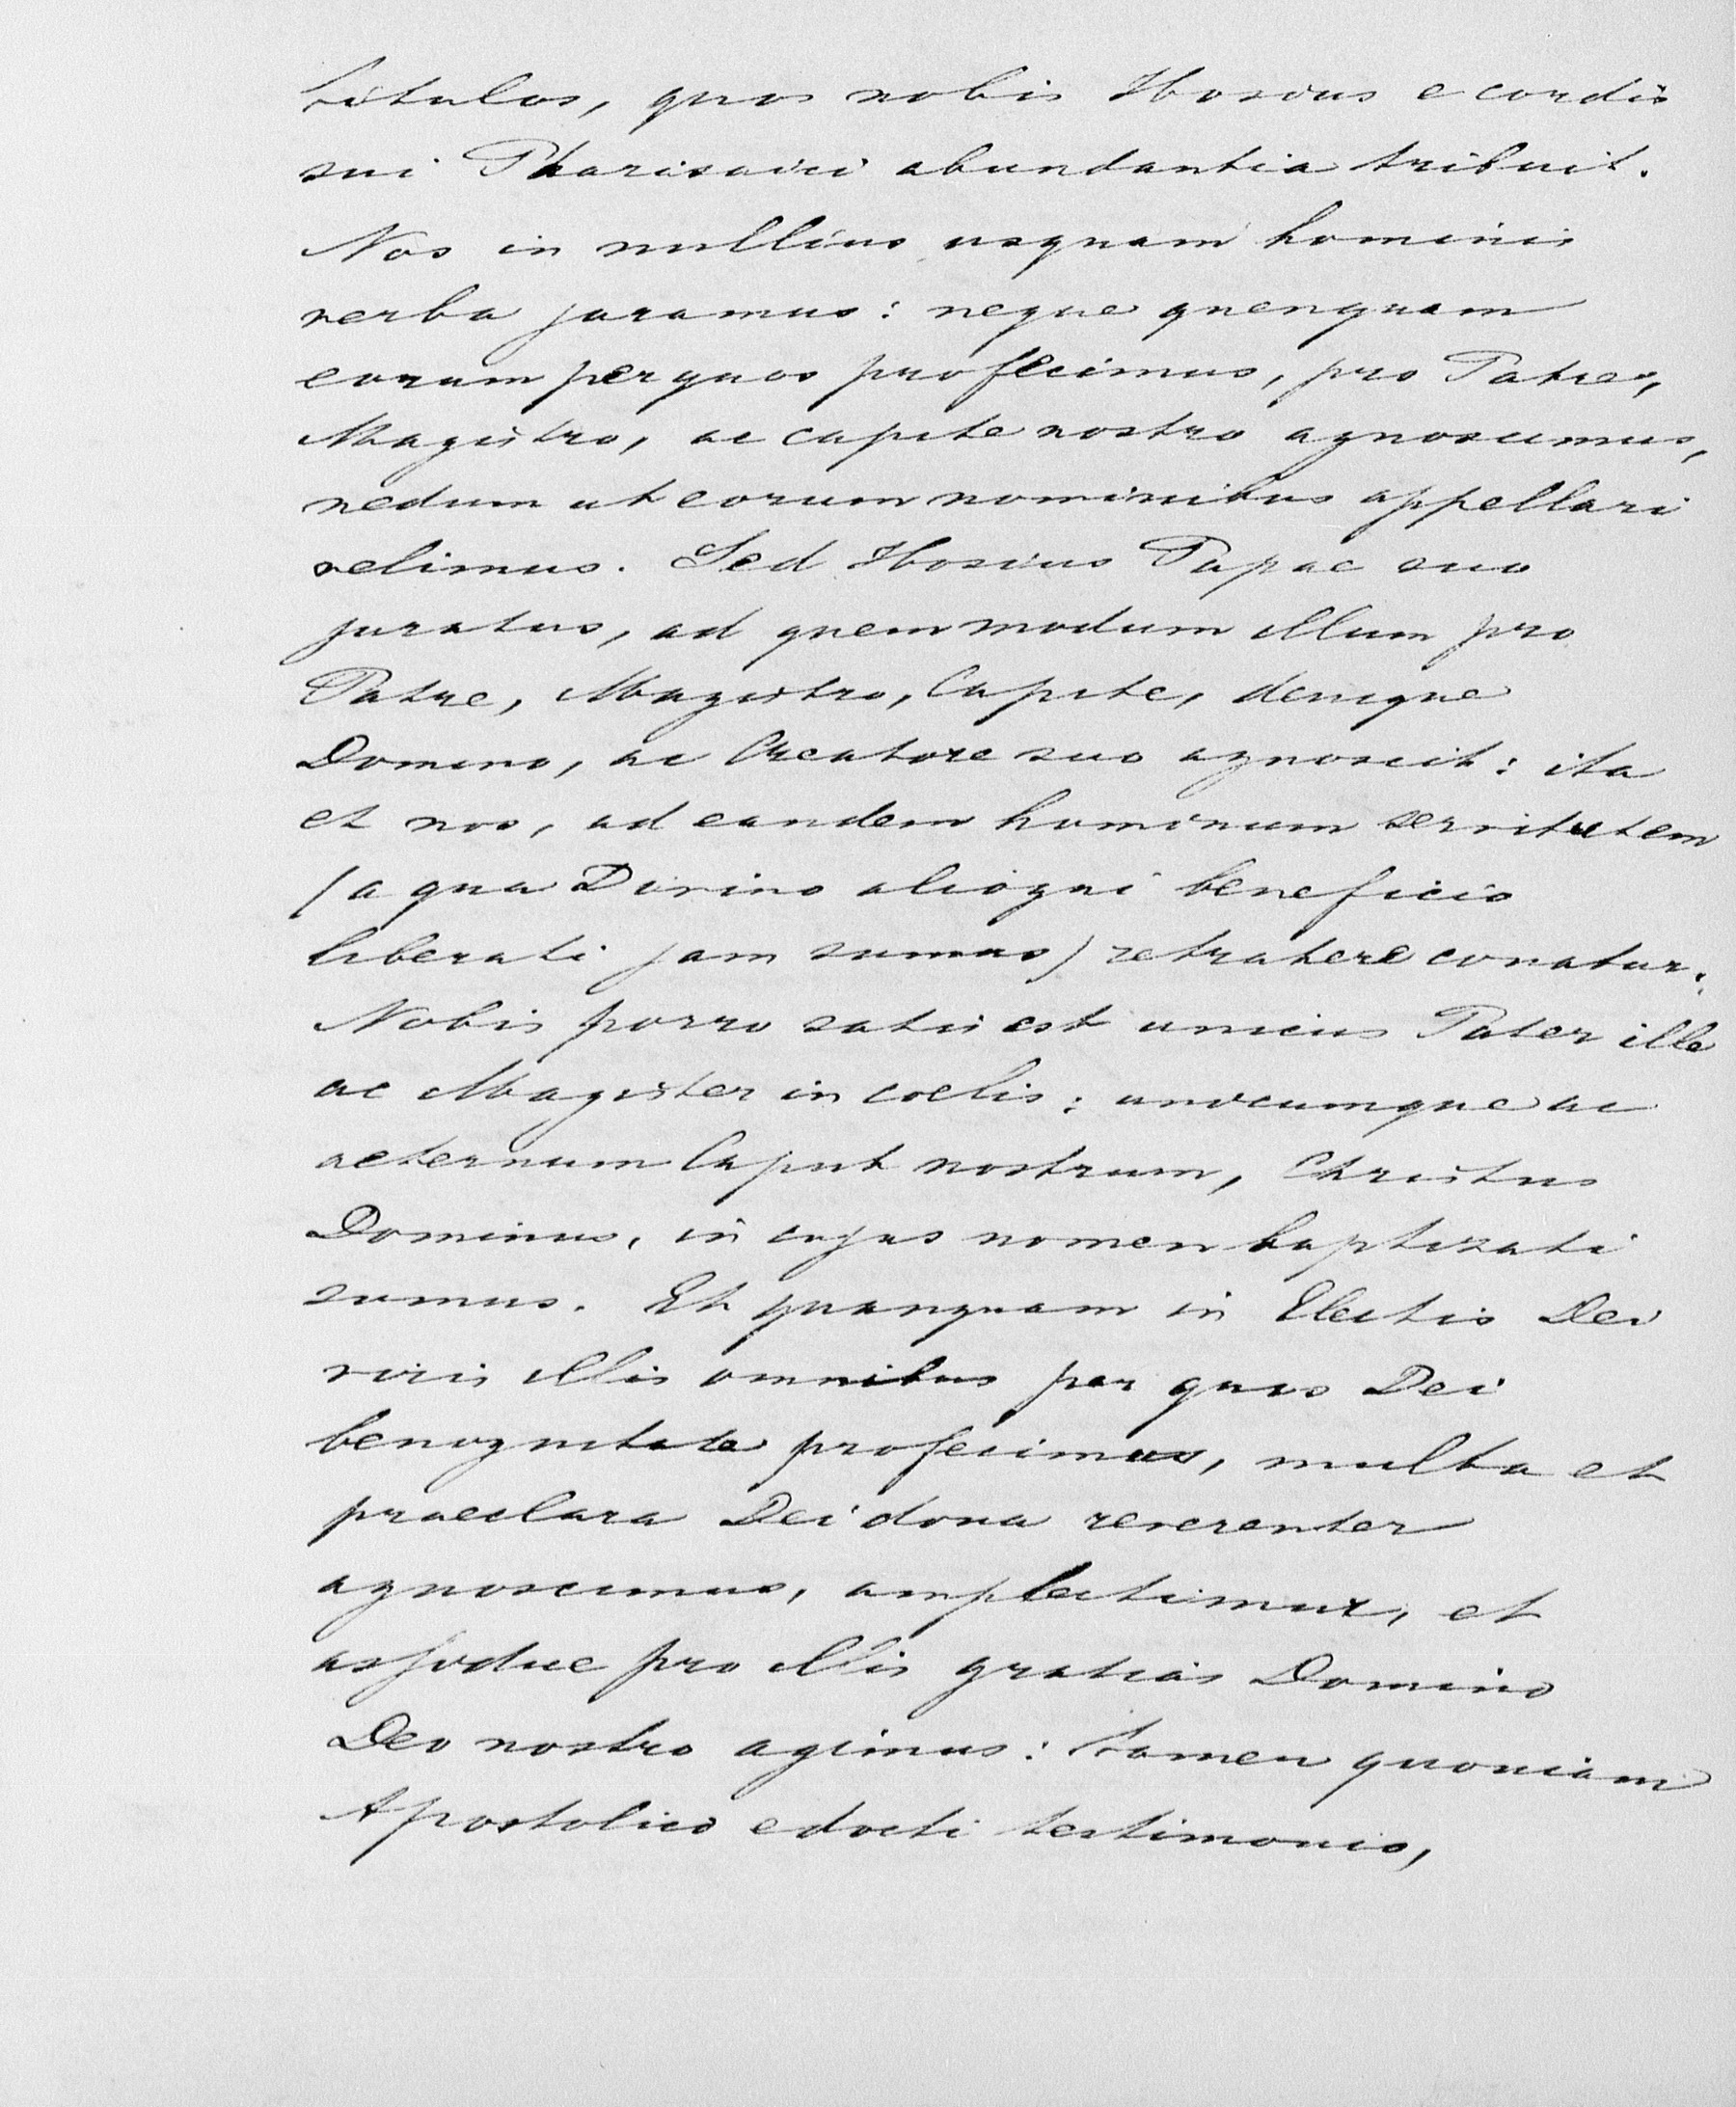 titulos, quos nobis Hosius e cordis
sui Pharisaici abundantia tribuit.
Nos in nullius usquam hominis
verba juramus: neque quenquam
eorum per quos profecimus, pro Patre,
Magistro, ac capite nostro agnoscimus,
nedum ut eorum nominibus appellari
velimus. Sed Hosius Papae suo
juratus, ad quem modum illum pro
Patre, Magistro, Capite, denique
Domino, ac Creatore suo agnoscit: ita
et nos, ad eandem hominum servitutem
(a qua Divino alioqui beneficio
liberati jam sumus) retrahere conatur.
Nobis porro satis est unicus Pater ille
ac Magister in coelis: unicumque ac
aeternum Caput nostrum, Christus
Dominus, in cujus nomen baptizati
sumus. Et quanquam in Electis Dei
viris illis omnibus per quos Dei
benignitate profecimus, multa et
praeclara Dei dona reverenter
agnoscimus, amplectimur, et
assidue pro illis gratias Domino
Deo nostro agimus: tamen quoniam
Apostolico edocti testimonio,